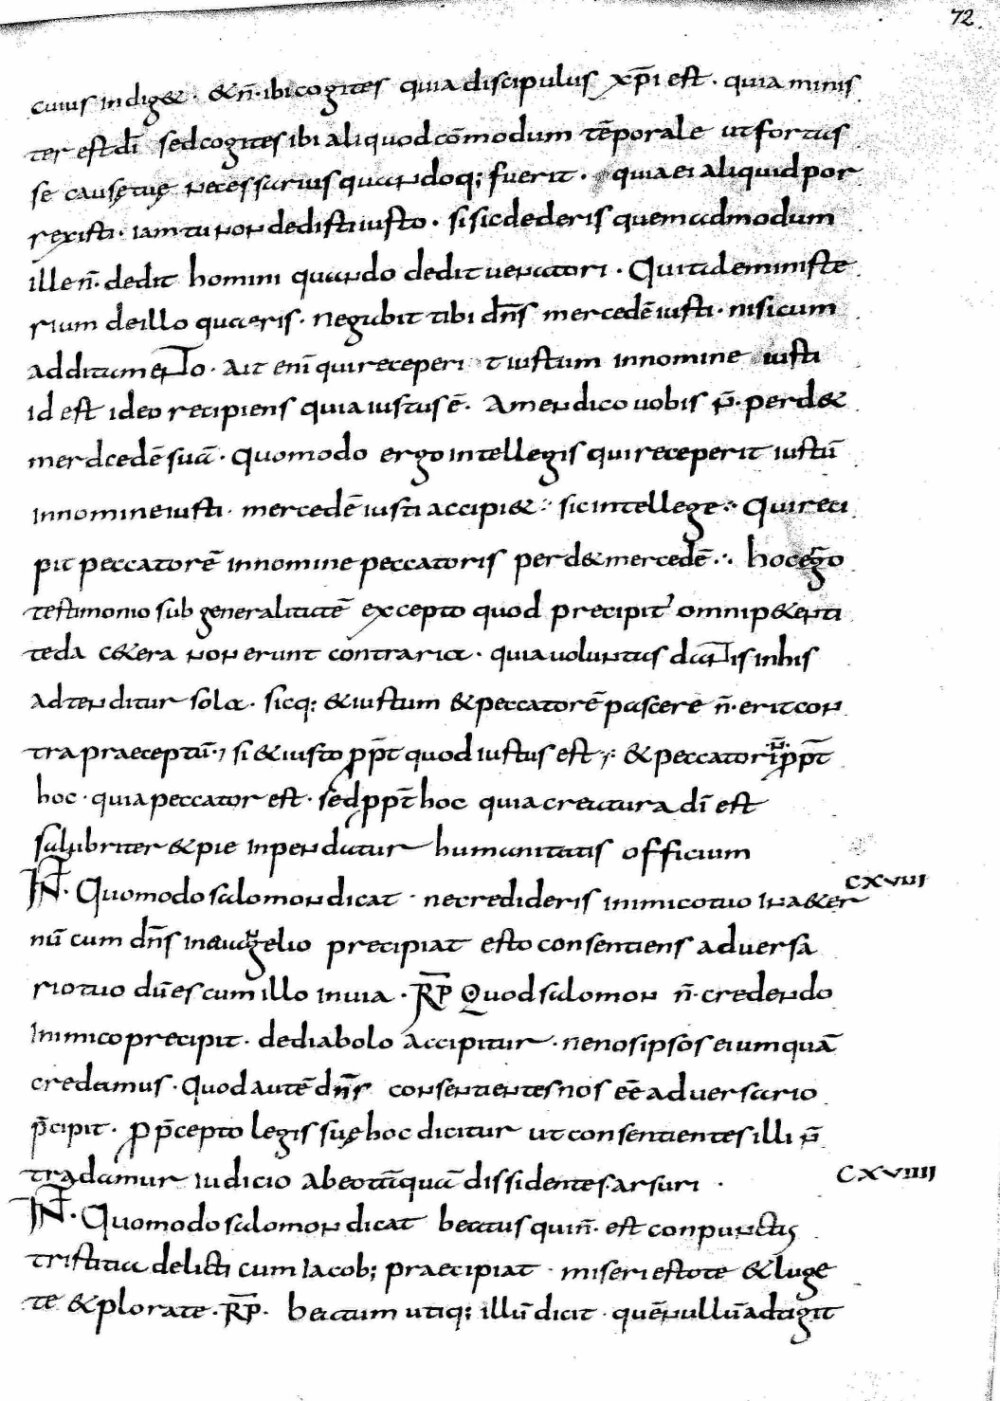 72
cuius indig&. &n̄. ibi cogites quia discipulus xp̄i est. quia minis
ter est dī sed cogites ibi aliquod cōmodum tēporale ut fortas
se causę tuę necessarius quandoq; fuerit. quia ei aliquid por
rexisti. iam tu non dedisti iusto. si sic dederis quemadmodum
ille n̄. dedit homini quando dedit uenatori. Qui ita de ministe
rium de illo quaeris. negabit tibi dn̄s mercedē iusti. nisi cum
additamento. Ait enī qui receperit iustum in nomine iusti
id est ideo recipiens quia iustus ē. Amen dico uobis n̄. perd&
merdcedē suā. Quomodo ergo intellegis qui receperit iustū
in nomine iusti. mercedē iusti accipi&. sic intellege. Qui reci
pit peccatorē in nomine peccatoris perd& mercedē. hoc ergo
testimonio sub generalitatē excepto quod precipit omnip&enti
te da c&era non erunt contraria. quia uoluntas dantis in his
adtenditur sola. sicq; & iustum & peccatorē pascere n̄. erit con
tra praeceptū. si & iusto pp̄t quod iustus est; & peccatori n̄ pp̄t
hoc. quia peccator est. sed pp̄t hoc quia creatura dī est
salubriter & pie inpendatur humanitatis officium
INT. Quomodo salomon dicat. ne credideris inimico tuo in a&er CXVIII
nū cum dn̄s in euāgelio precipiat esto consentiens aduersa
rio tuo dū es cum illo in uia. RP̄ Quod salomon n̄. credendo
inimico precipit. de diabolo accipitur. ne nos ipsos ei umquā
credamus. Quod autē dn̄s consentientes nos eē aduersario
p̄cipit. p p̄cepto legis suę hoc dicitur ut consentientes illi n̄
tradamur iudicio ab eo tāquā dissidentes arsuri. CXVIIII
INT. Quomodo salomon dicat beatus qui n̄. est conpunctus
tristitia delicti cum iacob; praecipiat. miseri estote & luge
te & plorate. RP̄. beatum utiq; illū dicit. quē nullū adtigit